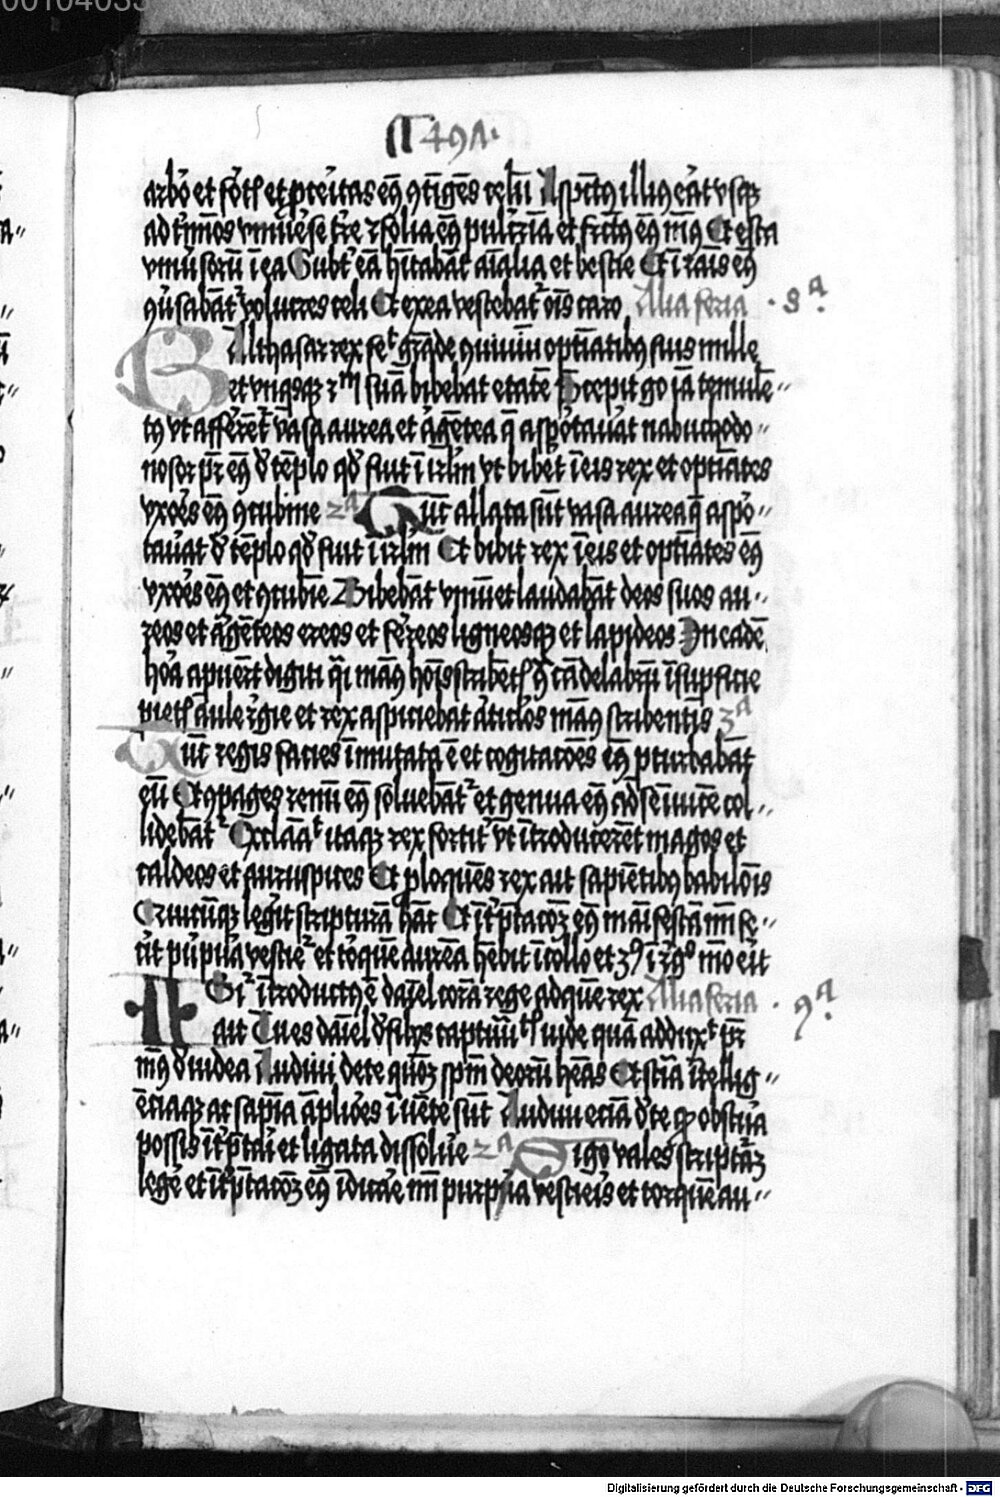 00104033
arbor et fortis et proceritas eius contingens celum Aspectus illius erat usque
ad terminos universe terre et folia eius pulcerrima et fructus eius nimius Et esca
universorum in ea Subter eam habitabant animalia et bestie Et in ramis eius
conversabantur volucres celi Et ex ea vescebatur omnis caro Alia feria · 8a
Balthasar rex fecit grande convivium optimatibus suis mille
et unusquisque secundum suam bibebat etatem Precepit ergo iam temulen
tus ut afferrentur vasa aurea et argentea que asportaverat nabuchodo
nosor pater eius de templo quod fuit in ierusalem ut biberent in eis rex et optimates
uxores eius concubine 2a Tunc allata sunt vasa aurea que aspor
taverat de templo quod fuit in ierusalem Et bibit rex in eis et optimates eius
uxores eius et concubine Bibebant vinum et laudabant deos suos au
reos et argenteos ereos et ferreos ligneosque et lapideos In eadem
hora apparuerunt digiti quasi manus hominis scribentis contra candelabrum in superficie
parietis aule regie et rex aspiciebat articulos manus scribentis 3a
Tunc regis facies immutata est et cogitationes eius conturbabant
eum Et compages renum eius solvebantur et genua eius ad se invicem col
lidebantur Exclamavit itaque rex fortiter ut introducerent magos et
caldeos et auruspices Et proloquens rex ait sapientibus babilonis
Quicumque legerit scripturam hanc Et interpretationem eius manifestam mihi fe
cerit purpura vestietur et torquem auream habebit in collo et tercius in regno meo erit
Igitur introductus est daniel coram rege ad quem rex Alia feria · 9a
ait Tu es daniel de filiis captivitatis iude quam adduxit pater
meus de iudea Audivi de te quoniam spiritum deorum habeas Et scientia intellig
enciaque ac sapientia ampliores invente sunt Audivi eciam de te quod obscura
possis interpretari et ligata dissolvere 2a Si ergo vales scripturam
legere et interpretationem eius indicare mihi purpura vestieris et torquem au
Digitalisierung gefördert durch die Deutsche Forschungsgemeinschaft - DFG